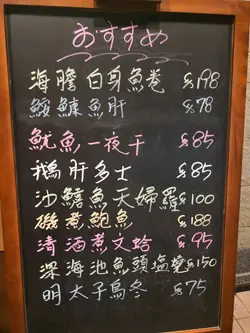 おすすめ
海膽白身魚卷 $198
鮟鱇魚肝 $78
魷魚一夜干 $85
鵝肝多士 $85
沙鱚魚天婦羅 $100
磯煮鮑魚 $188
清酒煮文蛤 $95
深海池魚頭塩燒 $150
明太子烏冬 $75